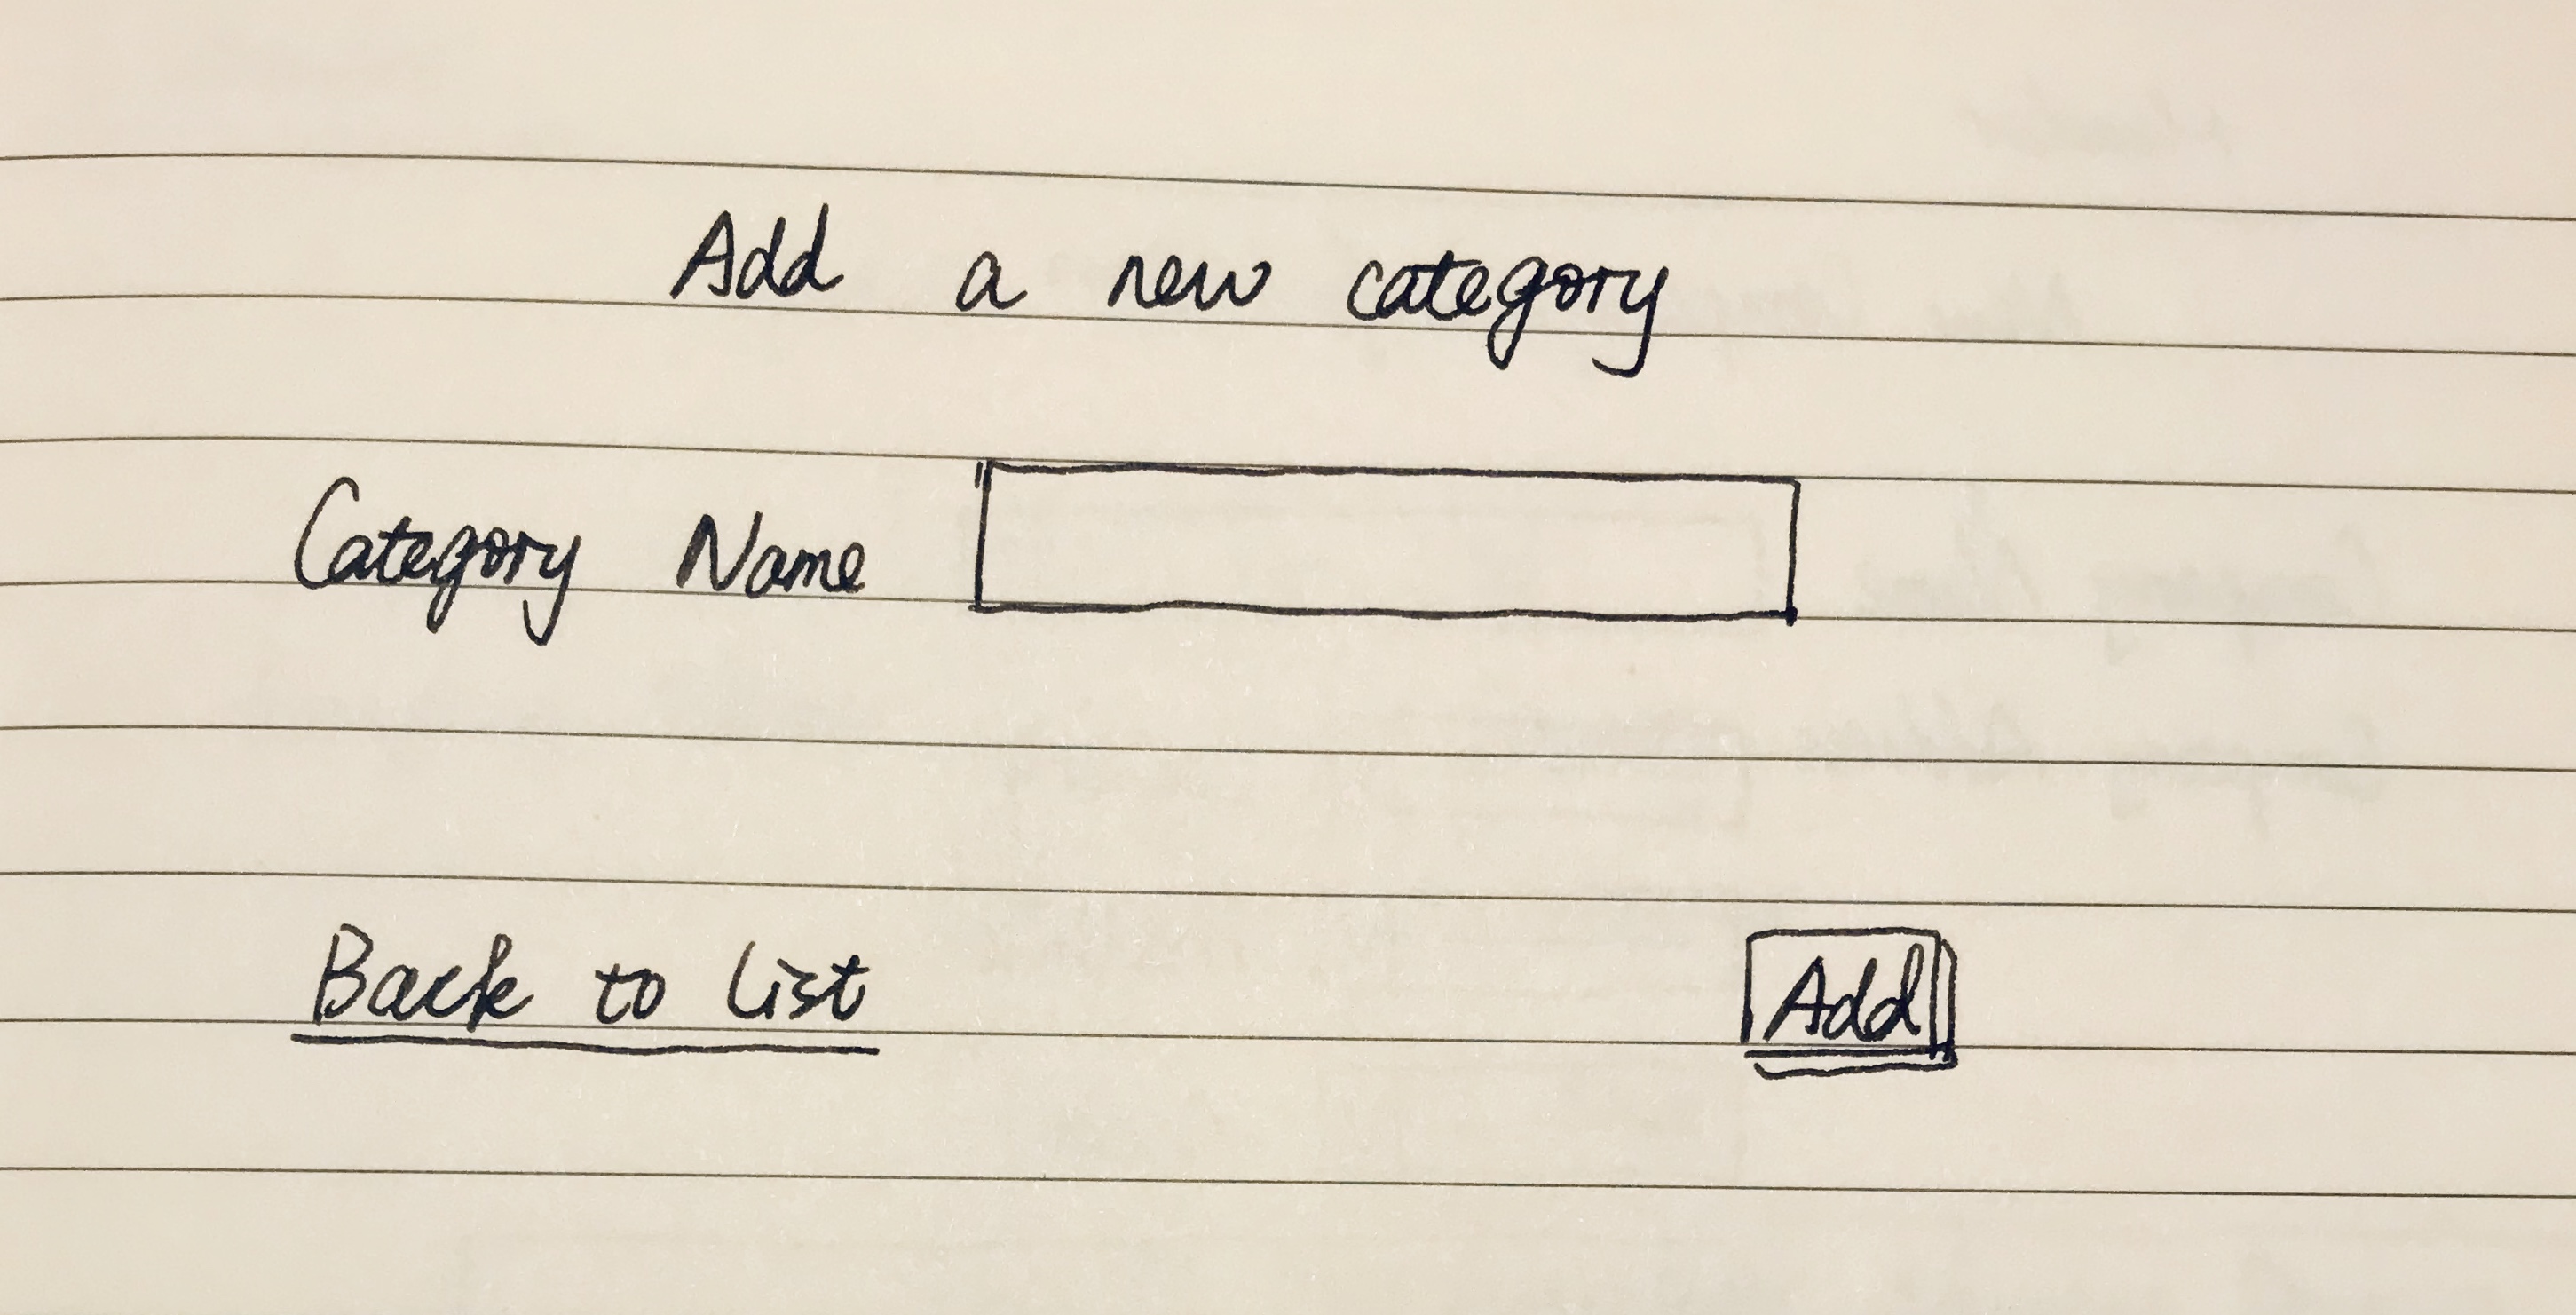 Add a new category
Category Name
Back to List
Add